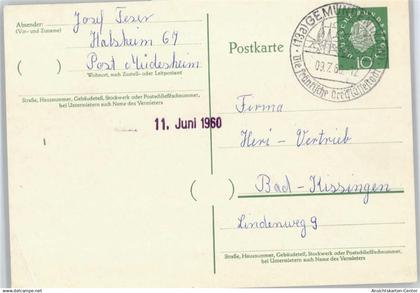 Absender:
(Vor- und Zuname)
Josef Feser
Halsheim 64
Post Müdesheim
Wohnort, auch Zustell- oder Leitpostamt
Straße, Hausnummer, Gebäudeteil, Stockwerk oder Postschließfachnummer,
bei Untermietern auch Name des Vermieters
11. Juni 1960
Postkarte
(13a) GEMÜN
10
Firma
Heri - Vertrieb
Bad-Kissingen
Lindenweg 9
Straße, Hausnummer, Gebäudeteil, Stockwerk oder Postschließfachnummer,
bei Untermietern auch Name des Vermieters
www.delcampe.net
Ansichtskarten-Center